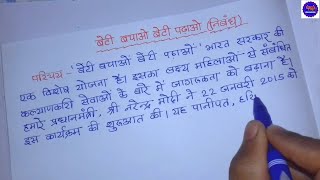 बेटी बचाओ बेटी पढ़ाओ (निबंध)
परिचय - 'बेटी बचाओ बेटी पढ़ाओ' भारत सरकार की
एक विशेष योजना है। इसका लक्ष्य महिलाओं से संबंधित
कल्याणकारी सेवाओं के बारे में जागरूकता को बढ़ाना है।
हमारे प्रधानमंत्री, श्री नरेन्द्र मोदी ने 22 जनवरी 2015 को
इस कार्यक्रम की शुरुआत की। यह पानीपत, हरि